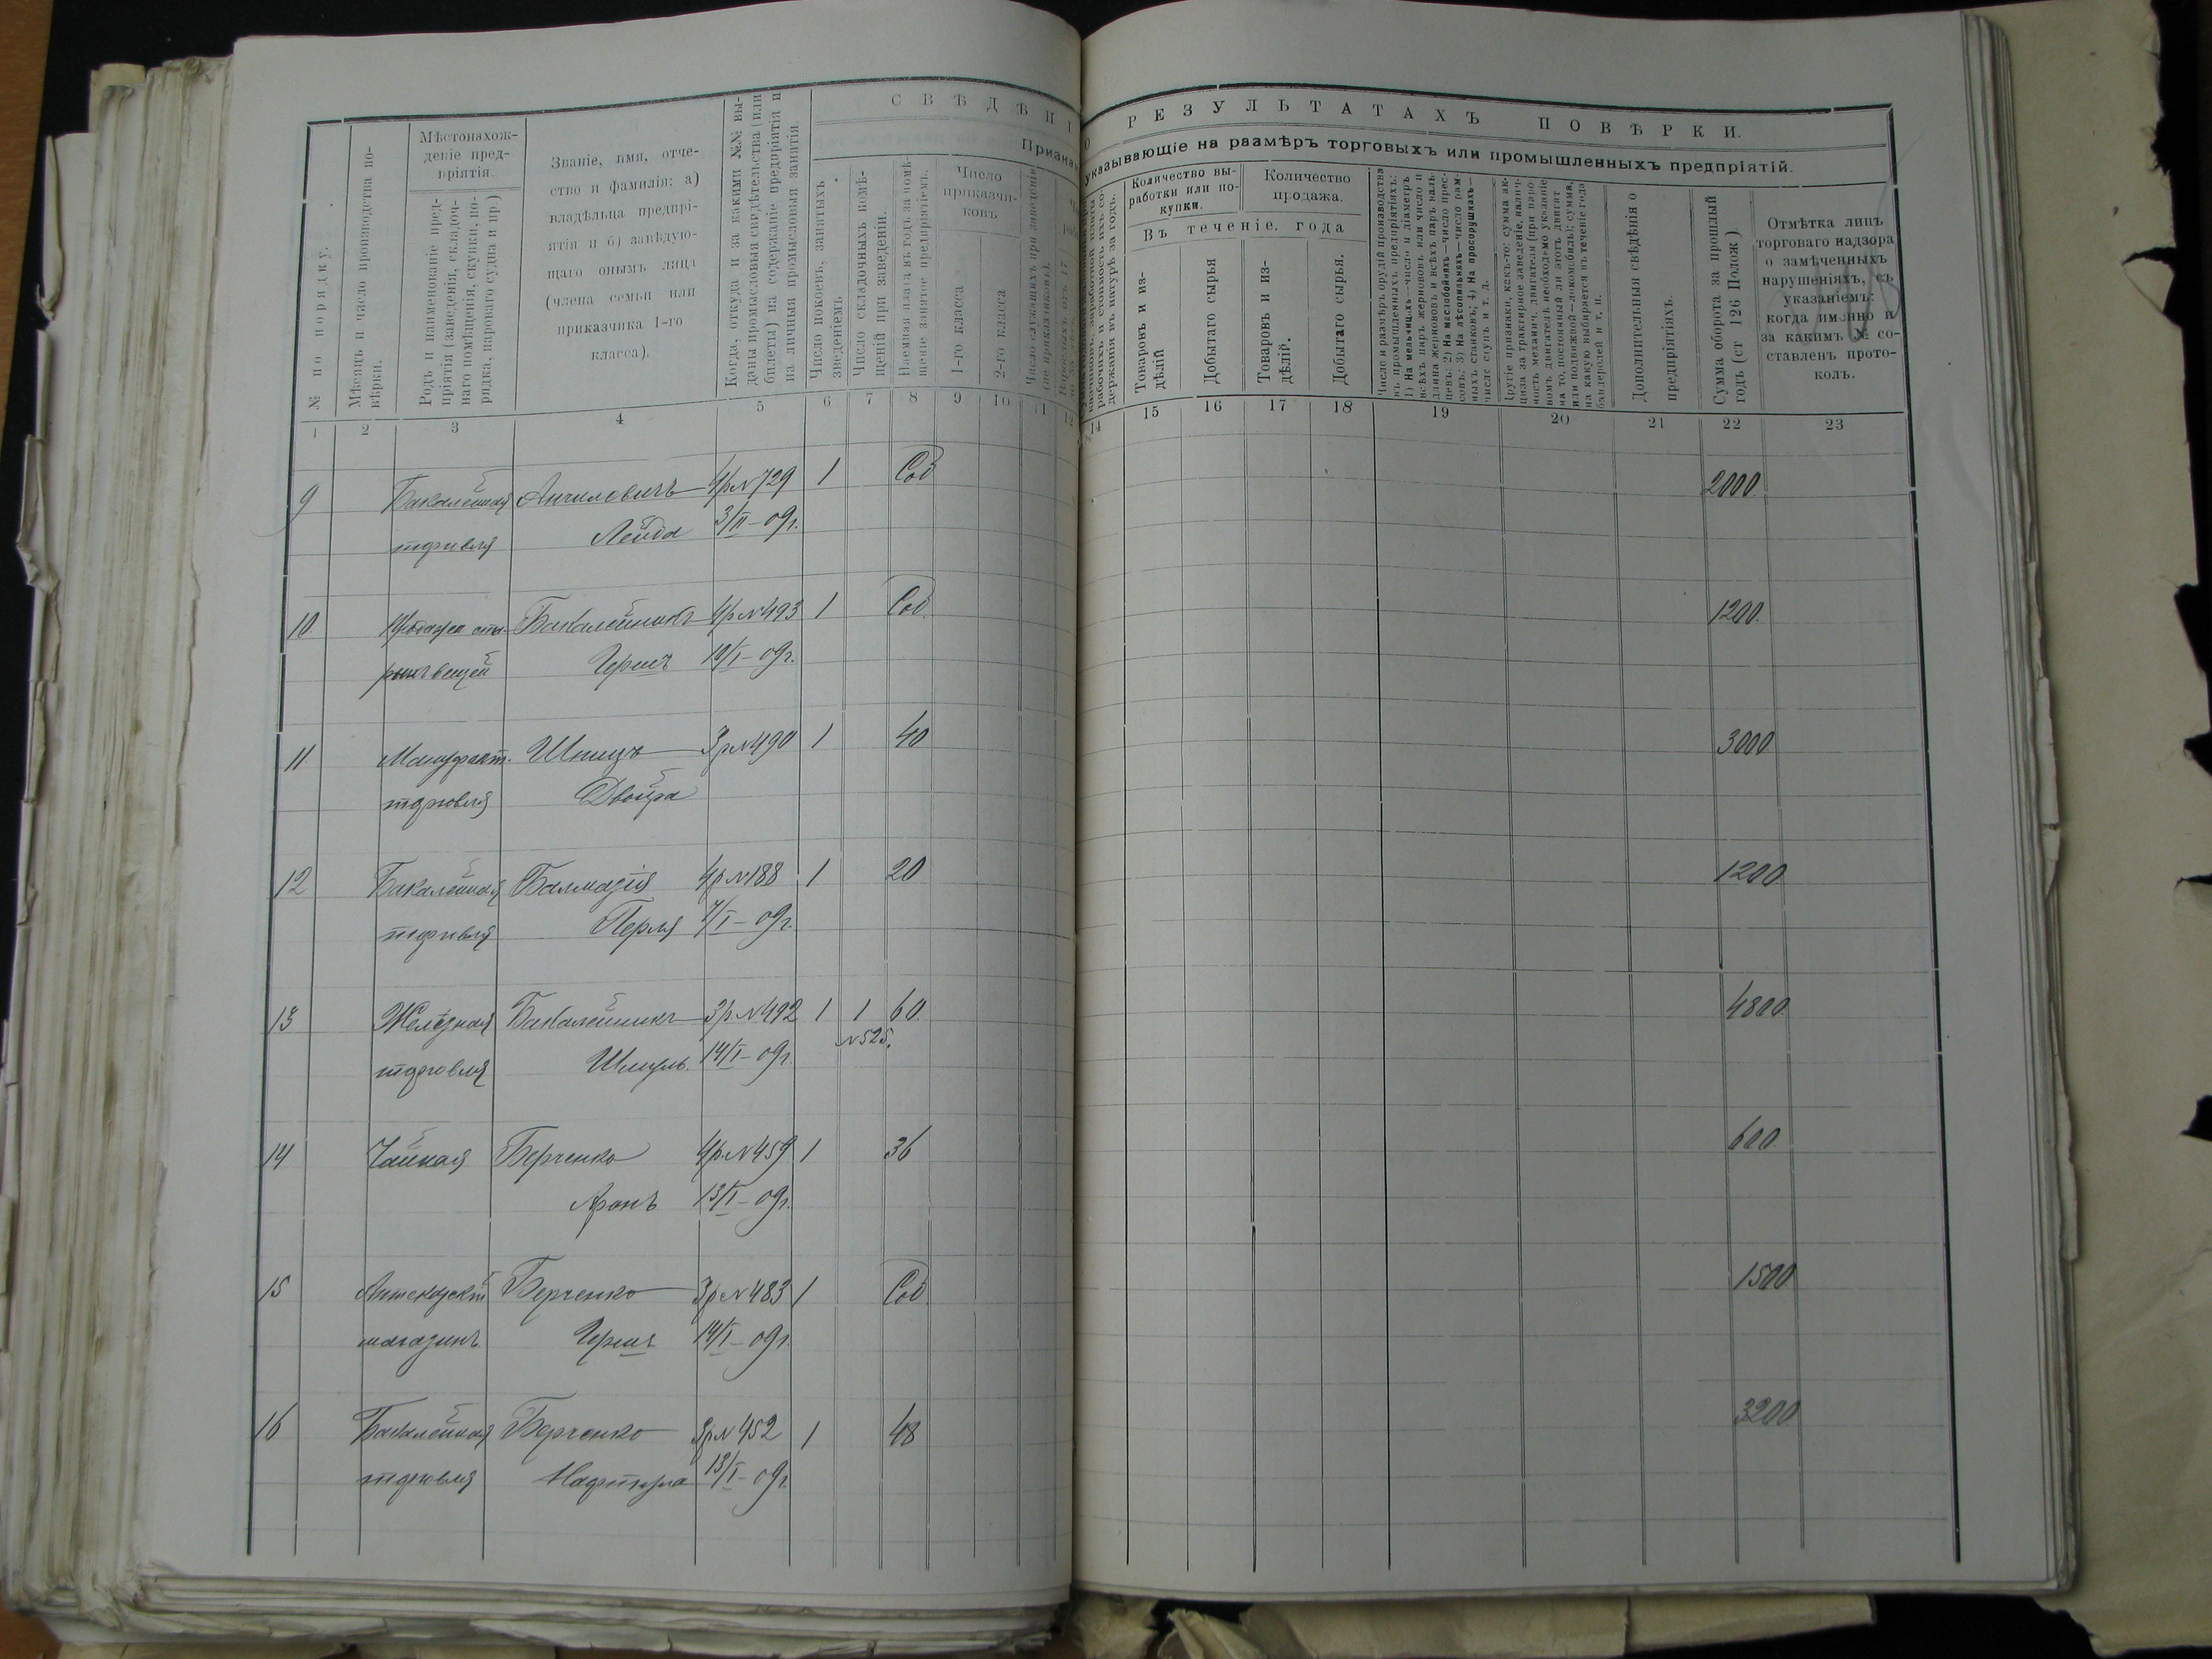 СВѢДѢНІ
О РЕЗУЛЬТАТАХЪ ПОВѢРКИ.
Признак
указывающіе на размѣръ торговыхъ или промышленныхъ предпріятій.
№ по порядку.
Мѣсяцъ и число производства по-
вѣрки.
Мѣстонахож-
деніе пред-
пріятія
Родъ и наименованіе пред-
пріятія (заведенія, складоч-
наго помѣщенія, скупки, по-
рядка, пароваго судна и пр.)
Званіе, имя, отче-
ство и фамилія: а)
владѣльца предпрі-
ятія и б) завѣдую-
щаго онымъ лица
(члена семьи или
приказчика 1-го
класса).
Когда, откуда и за какими №№ вы-
даны промысловыя свидѣтельства (или
билеты) на содержаніе предпріятія и
на личныя промысловыя занятія.
Число покоевъ, занятыхъ
зведеніемъ
Число складочныхъ помѣ-
щеній при заведеніи.
Наемная плата въ годъ за помѣ-
щеніе занятое предпріятіемъ.
Число
приказчи-
ковъ
1-го класса
2-го класса
Число служащихъ при заведеніи
(не приказчиковъ).
Количество вы-
работки или по-
купки.
Количество
продажа.
Въ теченіе года
Товаровъ и из-
дѣлій
Добытаго сырья
Товаровъ и из-
дѣлій.
Добытаго сырья.
Число и размѣръ орудій производства
въ промышленныхъ предпріятіяхъ:
1) На мельницахъ—число и діаметръ
всѣхъ паръ жернововъ или число и
длина жернововъ и всѣхъ паръ валь-
цевъ; 2) На маслобойняхъ—число прес-
совъ; 3) На лѣсопильняхъ—число рам-
ныхъ станковъ; 4) На просорушкахъ—
число ступъ и т. д.
Другіе признаки, какъ-то: сумма ак-
циза за трактирное заведеніе, налич-
ность механич. двигателя (при паро-
вомъ двигателѣ необходимо указаніе
на то, постоянный ли этотъ двигат
или подвижной—локомобиль); сумма,
на какую выбирается въ теченіе года
бандеролей и т. п.
Дополнительныя свѣдѣнія о
предпріятіяхъ.
Сумма оборота за прошлый
годъ (ст 126 Полож )
Отмѣтка лицъ
торговаго надзора
о замѣченныхъ
нарушеніяхъ, съ
указаніемъ:
когда именно и
за какимъ № со-
ставленъ прото-
колъ.
1 2 3 4 5 6 7 8 9 10 11 12 14 15 16 17 18 19 20 21 22 23
9 Бакалейная 4р № 729 1 Соб 2000
торговля Лейба 3/II—09г.
10. Продажа ста- Бакалейникъ 4р № 493 1 Соб. 1200.
рыхъ вещей Гершъ 10/I—09г.
11 Мануфакт. Шпицъ 3р № 490 1 40 3000
торговля Двойра
12 Бакалейная Балмазія 4р № 188 1 20 1200
торговля Перля 7/I—09г.
13 Желѣзная Бакалейникъ 3р. № 492 1 1 60. 4800
№ 525.
торговля Шмуль. 14/I—09г.
14 Чайная Берченко 4р. № 459 1 36 600.
Аронъ 13/I—09г.
15 Аптекарскій Берченко 3р № 483 1 Соб. 1500
магазинъ. Гершъ 14/I—09г.
16 Бакалейная Берченко 3р № 452 1 48 3200
торговля Нафтула 13/I—09г.